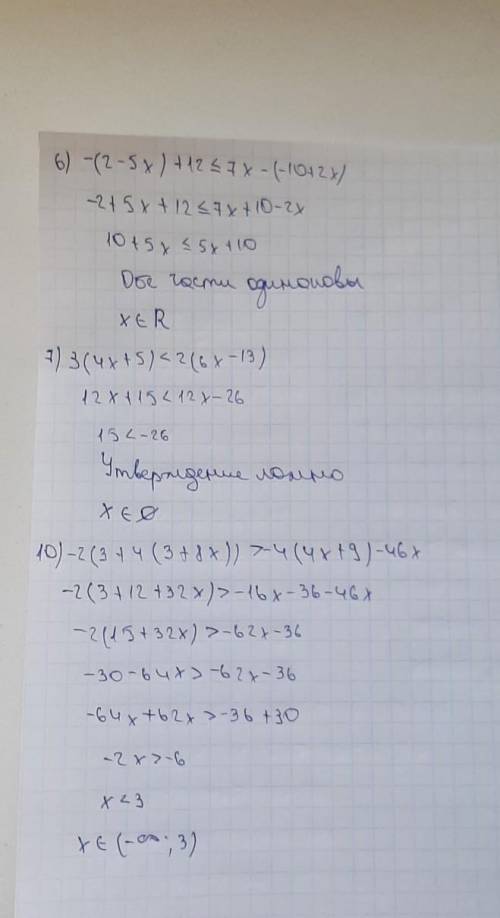 6) -(2-5x)+12≤7x-(-10+2x)
-2+5x+12≤7x+10-2x
10+5x≤5x+10
Обе части одинаковы
x∈R
7) 3(4x+5)<2(6x-13)
12x+15<12x-26
15<-26
Утверждение ложно
x∈∅
10) -2(3+4(3+8x))>-4(4x+9)-46x
-2(3+12+32x)>-16x-36-46x
-2(15+32x)>-62x-36
-30-64x>-62x-36
-64x+62x>-36+30
-2x>-6
x<3
x∈(-∞;3)